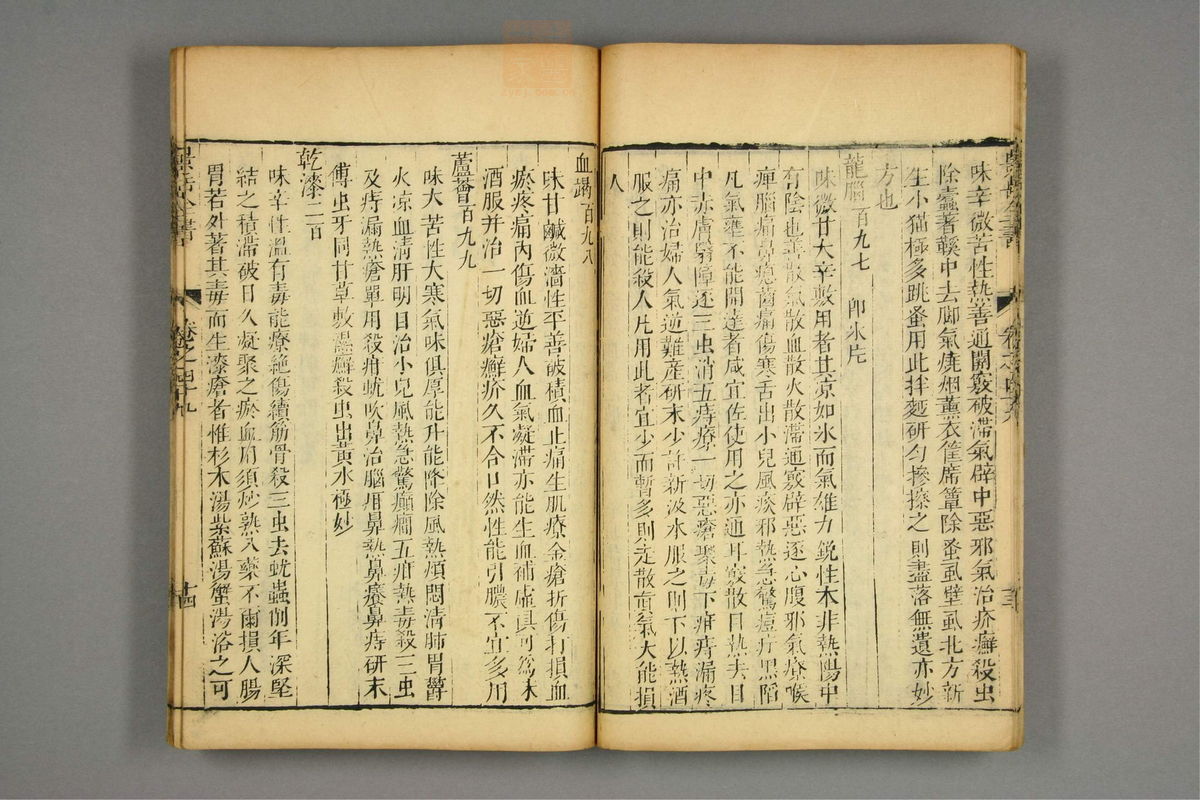 味辛微苦性熱善通關竅破滯氣辟中惡邪氣治疥癬殺虫
除蠹著鞵中去脚氣燒烟薰衣筐席簟除蚤虱壁虱北方新
生小猫極多跳蚤用此拌麵研勻摻擦之則盡落無遺亦妙
方也
龍腦一百九七 卽冰片
味微甘大辛敷用者其凉如氷而氣雄力銳性本非熱陽中
有陰也善散氣散血散火散滯通竅辟惡逐心腹邪氣療喉
痺腦痛鼻瘜齒痛傷寒舌出小兒風痰邪熱急驚痘疔黑陷
凡氣壅不能開達者咸宜佐使用之亦通耳竅散目熱去目
中赤膚翳障逐三虫消五痔療一切惡瘡聚毒下疳痔漏疼
痛亦治婦人氣逆難產研末少許新汲水服之則下以熱酒
服之則能殺人凡用此者宜少而暫多則走散眞氣大能損
人
血竭百九八
味甘鹹微濇性平善破積血止痛生肌療金瘡折傷打損血
瘀疼痛內傷血逆婦人血氣凝滯亦能生血補虛俱可爲末
酒服并治一切惡瘡癬疥久不合口然性能引膿不宜多用
蘆薈百九九
味大苦性大寒氣味俱厚能升能降除風熱煩悶清肺胃鬱
火凉血清肝明目治小兒風熱急驚癲癇五疳熱毒殺三虫
及痔漏熱瘡單用殺疳蚘吹鼻治腦疳鼻熱鼻癢鼻痔研末
傅虫牙同甘草敷濕癬殺虫出黃水極妙
乾漆二百
味辛性溫有毒能療絶傷續筋骨殺三虫去蚘蟲削年深堅
結之積滯破日久凝聚之瘀血用須炒熟入藥不爾損人腸
胃若外著其毒而生漆瘡者惟杉木湯紫蘇湯蟹湯浴之可
景岳全書
卷之四十九
十四